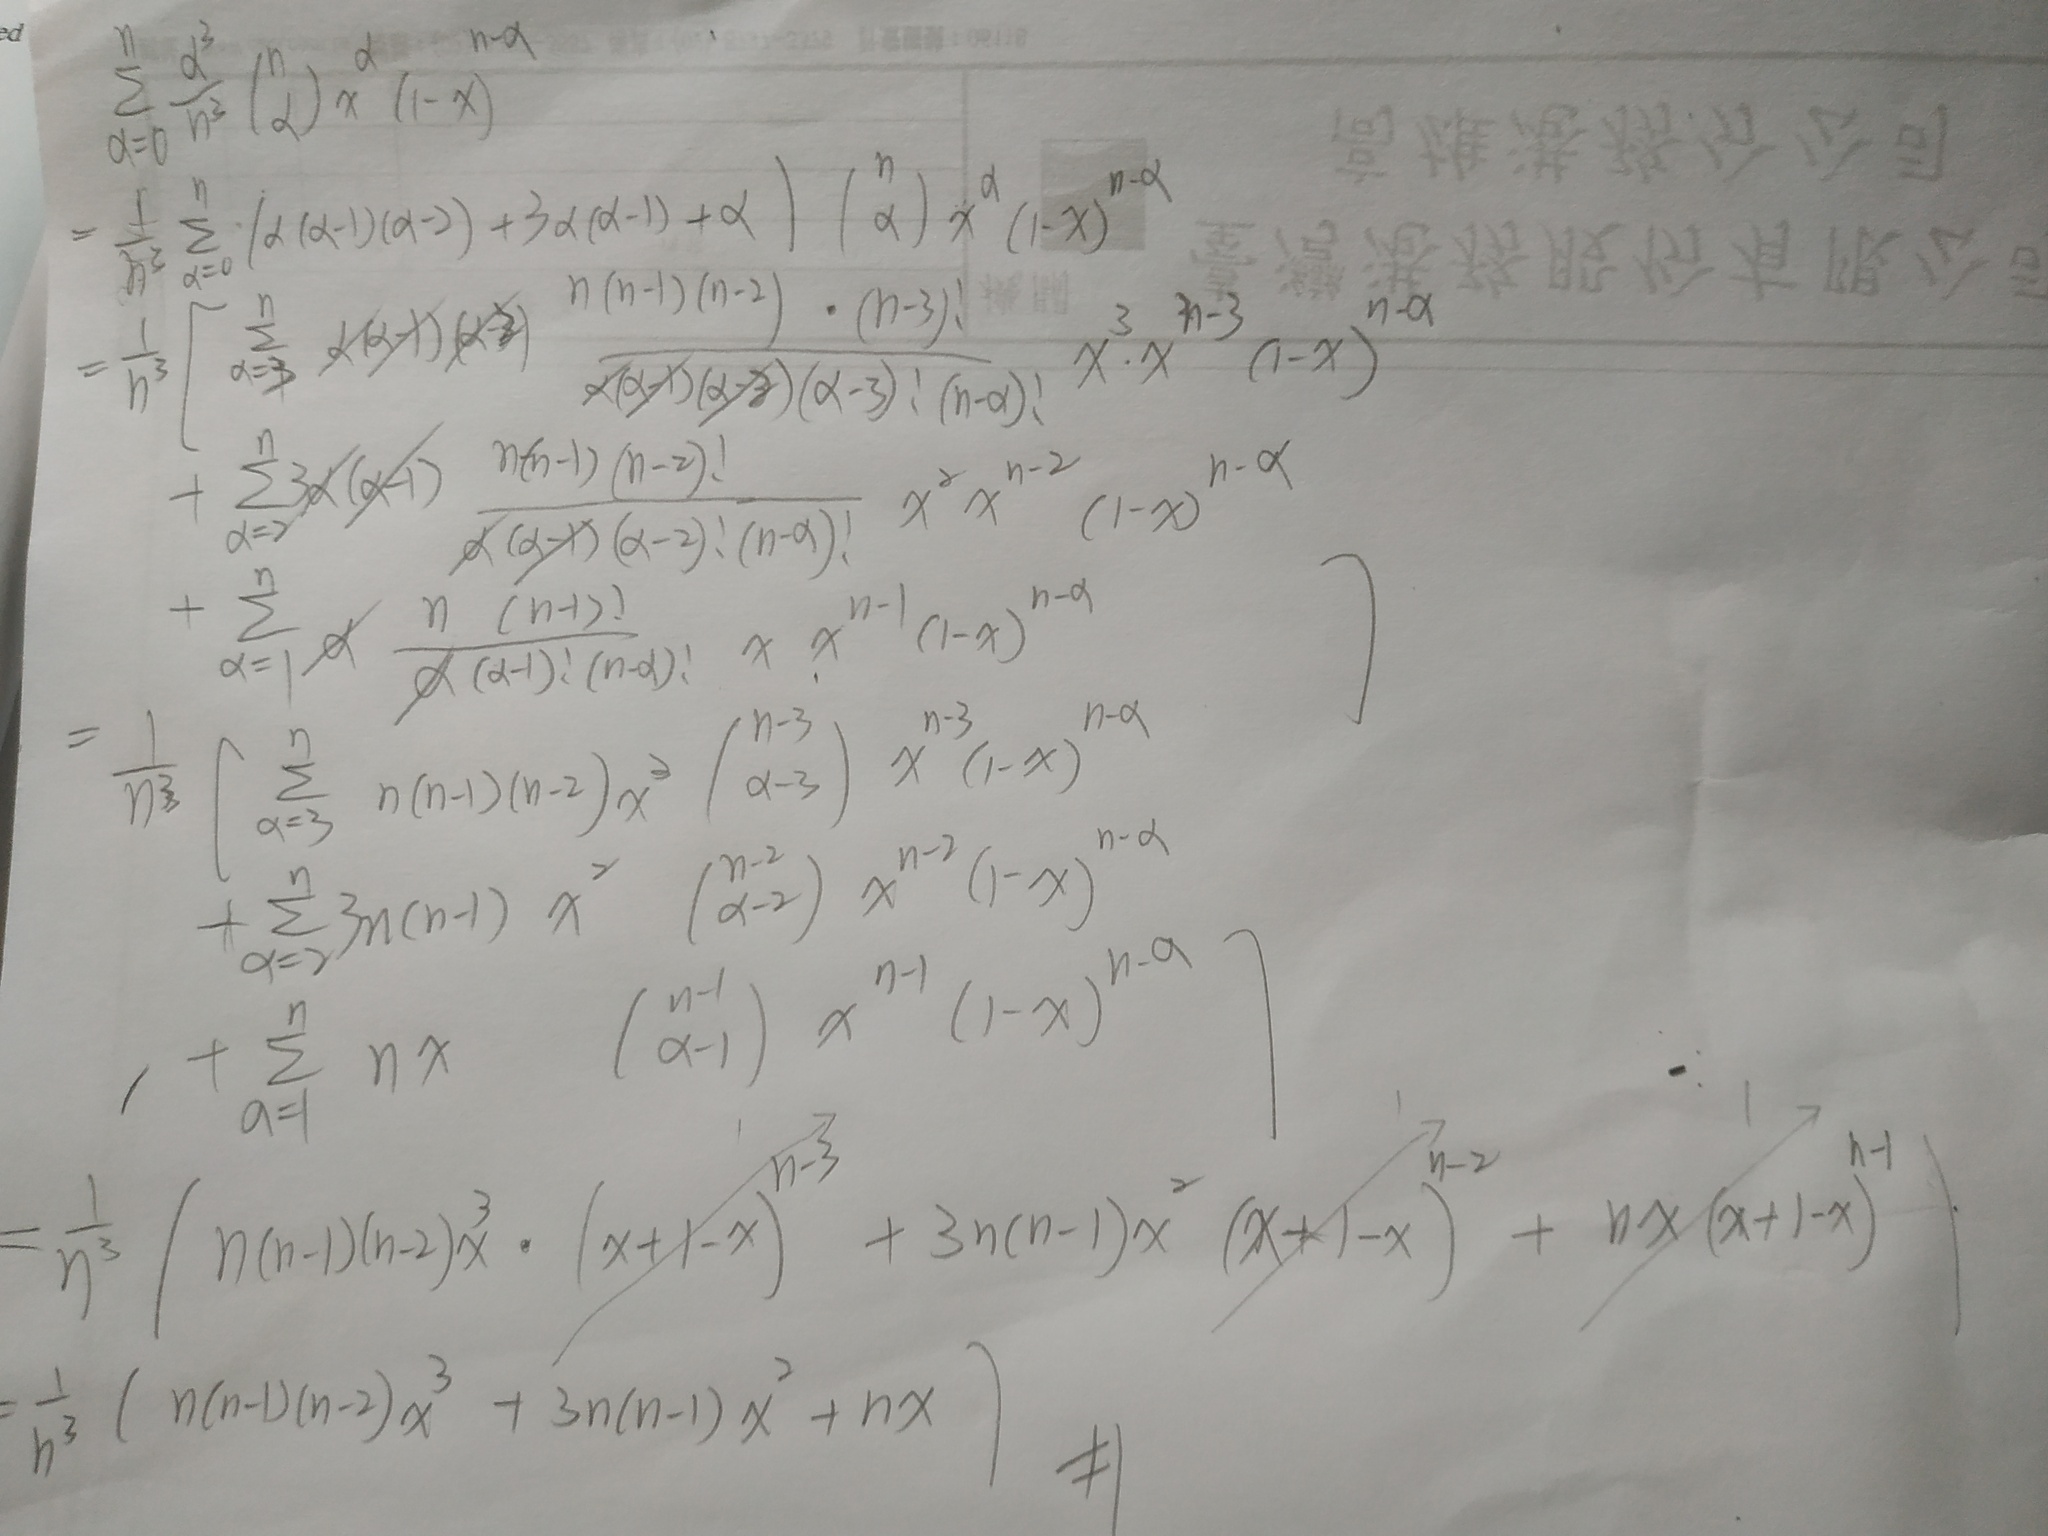 ed
\sum_{α=0}^{n} \frac{α^3}{n^3} \binom{n}{α} x^α (1-x)^{n-α}
= \frac{1}{n^3} \sum_{α=0}^{n} (α(α-1)(α-2) + 3α(α-1) + α) \binom{n}{α} x^α (1-x)^{n-α}
= \frac{1}{n^3} [ \sum_{α=3}^{n} α(α-1)(α-2) \frac{n(n-1)(n-2) · (n-3)!}{α(α-1)(α-2)(α-3)!(n-α)!} x^3 · x^{n-3} (1-x)^{n-α}
+ \sum_{α=2}^{n} 3α(α-1) \frac{n(n-1)(n-2)!}{α(α-1)(α-2)!(n-α)!} x^2 x^{n-2} (1-x)^{n-α}
+ \sum_{α=1}^{n} α \frac{n (n-1)!}{α(α-1)!(n-α)!} x x^{n-1} (1-x)^{n-α} ]
= \frac{1}{n^3} [ \sum_{α=3}^{n} n(n-1)(n-2) x^3 \binom{n-3}{α-3} x^{n-3} (1-x)^{n-α}
+ \sum_{α=2}^{n} 3n(n-1) x^2 \binom{n-2}{α-2} x^{n-2} (1-x)^{n-α}
+ \sum_{α=1}^{n} nx \binom{n-1}{α-1} x^{n-1} (1-x)^{n-α} ]
1 1 1
= \frac{1}{n^3} ( n(n-1)(n-2)x^3 · (x+1-x)^{n-3} + 3n(n-1)x^2 (x+1-x)^{n-2} + nx (x+1-x)^{n-1} )
= \frac{1}{n^3} ( n(n-1)(n-2)x^3 + 3n(n-1)x^2 + nx )